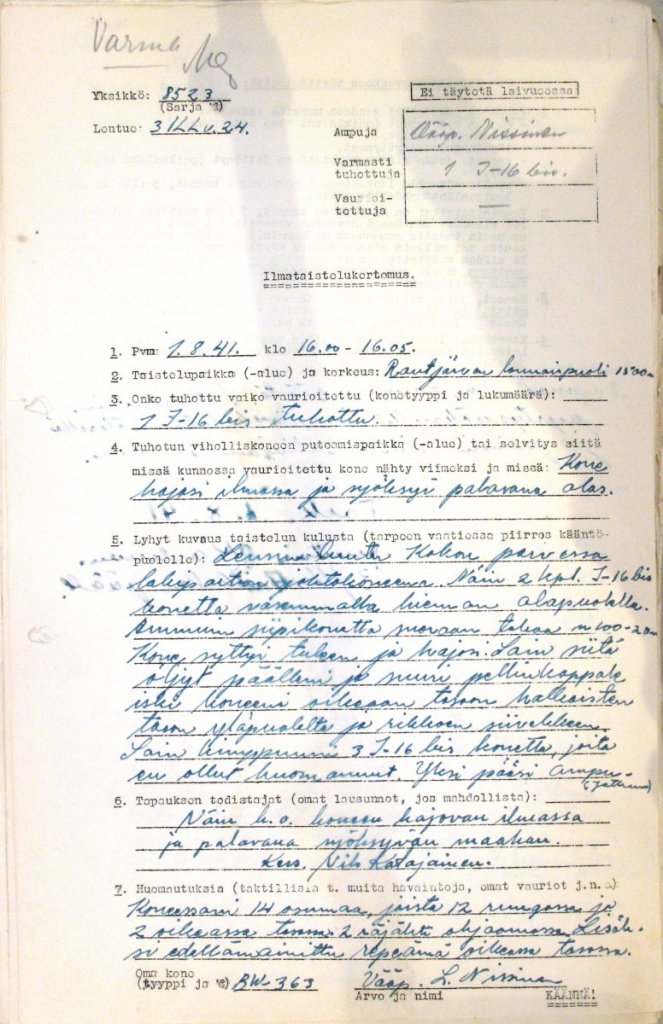 Varma
Yksikkö: 8523
(Sarja №)
Lentue: 3/LLv.24.
Ei täytetä laivueessa
Ampuja Vääp. Nissinen
Varmasti tuhottuja 1 I-16 bis.
Vaurioi-tettuja —
Ilmataistelukertomus.
1. Pvm: 1.8.41. klo 16.00 - 16.05.
2. Taistelupaikka (-alue) ja korkeus: Rautjärven 1500m
3. Onko tuhottu vaiko vaurioitettu (konetyyppi ja lukumäärä):
1 I-16 bis tuhottu.
4. Tuhotun viholliskoneen putoamispaikka (-alue) tai selvitys siitä
missä kunnossa vaurioitettu kone nähty viimeksi ja missä: Kone
hajosi ilmassa ja syöksyi palavana alas.
5. Lyhyt kuvaus taistelun kulusta (tarpeen vaatiessa piirros kääntö-
puolelle): Lensin luutn Kokon parvessa
johtokoneena. Näin 2 kpl. I-16 bis
konetta vasemmalla hieman alapuolella.
Ammuin siipikonetta suoraan takaa n 100-20m
Kone syttyi tuleen ja hajosi. Sain siitä
öljyt päälleni ja suuri pellinkappale
iski koneeni oikeaan tasoon halkaisten
tason yläpuolelta ja rikkoen siivekkeen.
Sain kimppuuni 3 I-16 bis konetta, joita
en ollut huomannut. Yksi pääsi ampu-
(jatkuu)
6. Tapauksen todistajat (omat lausunnot, jos mahdollista):
Näin k.o. koneen hajoavan ilmassa
ja palavana syöksyvän maahan.
Kers. Nils Katajainen.
7. Huomautuksia (taktillisia t. muita havaintoja, omat vauriot j.n.e):
Koneessani 14 osumaa, joista 12 rungossa ja
2 oikeassa tasossa. 2 räjähti ohjaamossa. Lisäk-
si edellämainittu repeämä oikeassa tasossa.
Oma kone
(tyyppi ja №) BW 363 Vääp. L. Nissinen
Arvo ja nimi KÄÄNNÄ!